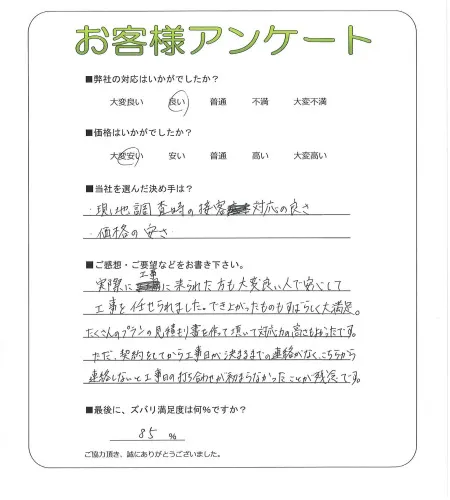 お客様アンケート
■弊社の対応はいかがでしたか？
大変良い 良い 普通 不満 大変不満
■価格はいかがでしたか？
大変安い 安い 普通 高い 大変高い
■当社を選んだ決め手は？
・現地調査時の接客対応の良さ
・価格の安さ
■ご感想・ご要望などをお書き下さい。
実際に工事に来られた方も大変良い人で安心して
工事を任せられました。でき上がったものもすばらしく大満足。
たくさんのプランの見積り書を作って頂いて対応力の高さもよかったです。
ただ、契約をしてから工事日が決まるまでの連絡がなく、こちらから
連絡しないと工事日の打ち合わせが始まらなかったことが残念です。
■最後に、ズバリ満足度は何%ですか？
85 %
ご協力頂き、誠にありがとうございました。